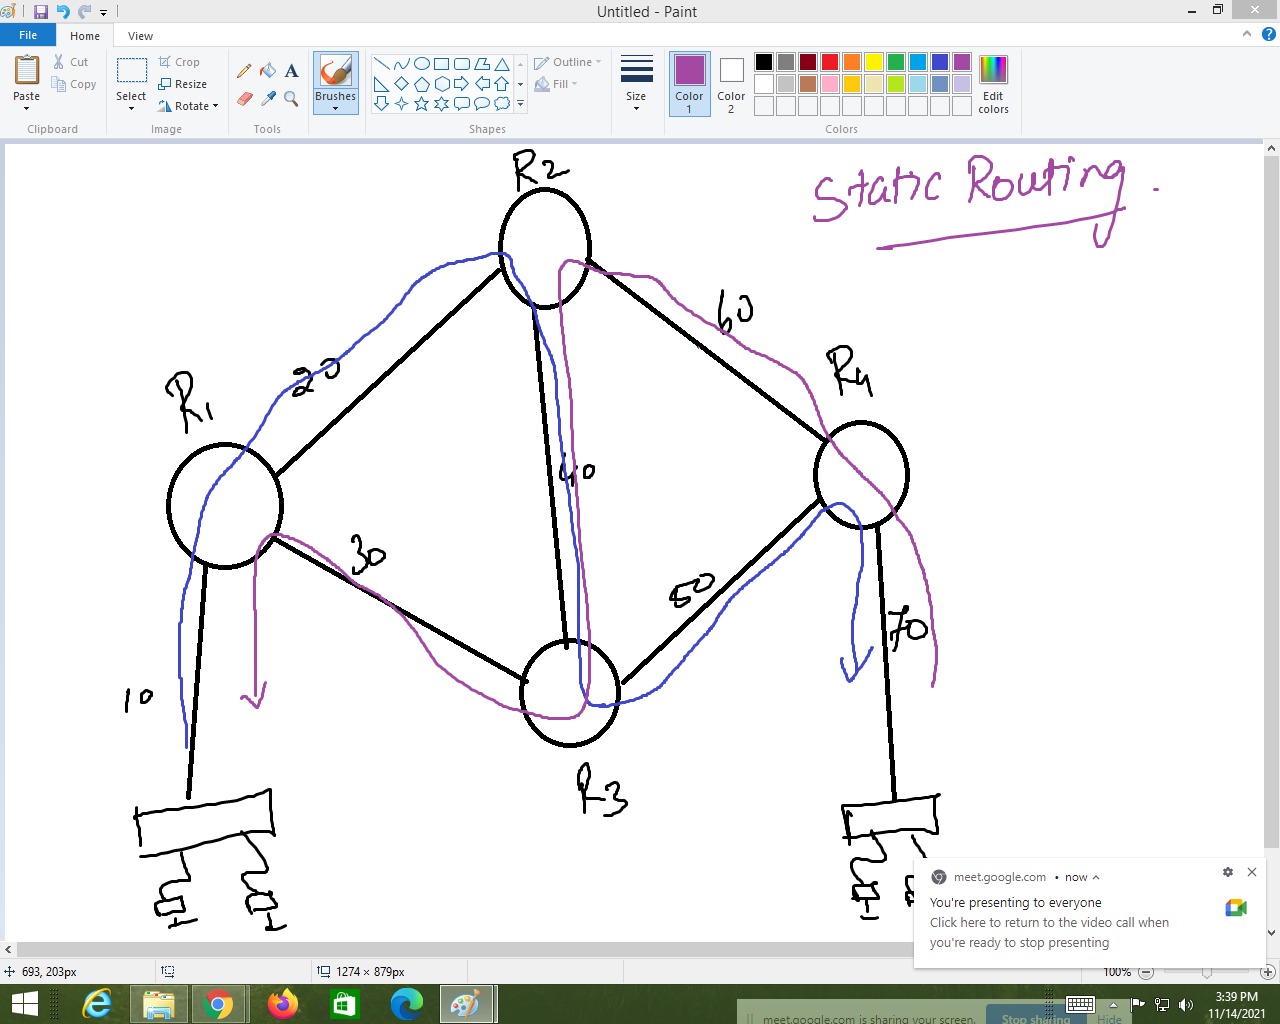 Untitled - Paint
File
Home
View
Paste
Cut
Copy
Clipboard
Select
Crop
Resize
Rotate
Image
Tools
Brushes
Shapes
Outline
Fill
Size
Color 1
Color 2
Edit colors
Colors
R2
Static Routing.
60
R4
20
R1
40
30
50
70
10
R3
meet.google.com • now
You're presenting to everyone
Click here to return to the video call when
you're ready to stop presenting
693, 203px
1274 × 879px
100%
meet.google.com is sharing your screen.
Stop sharing
Hide
3:39 PM
11/14/2021